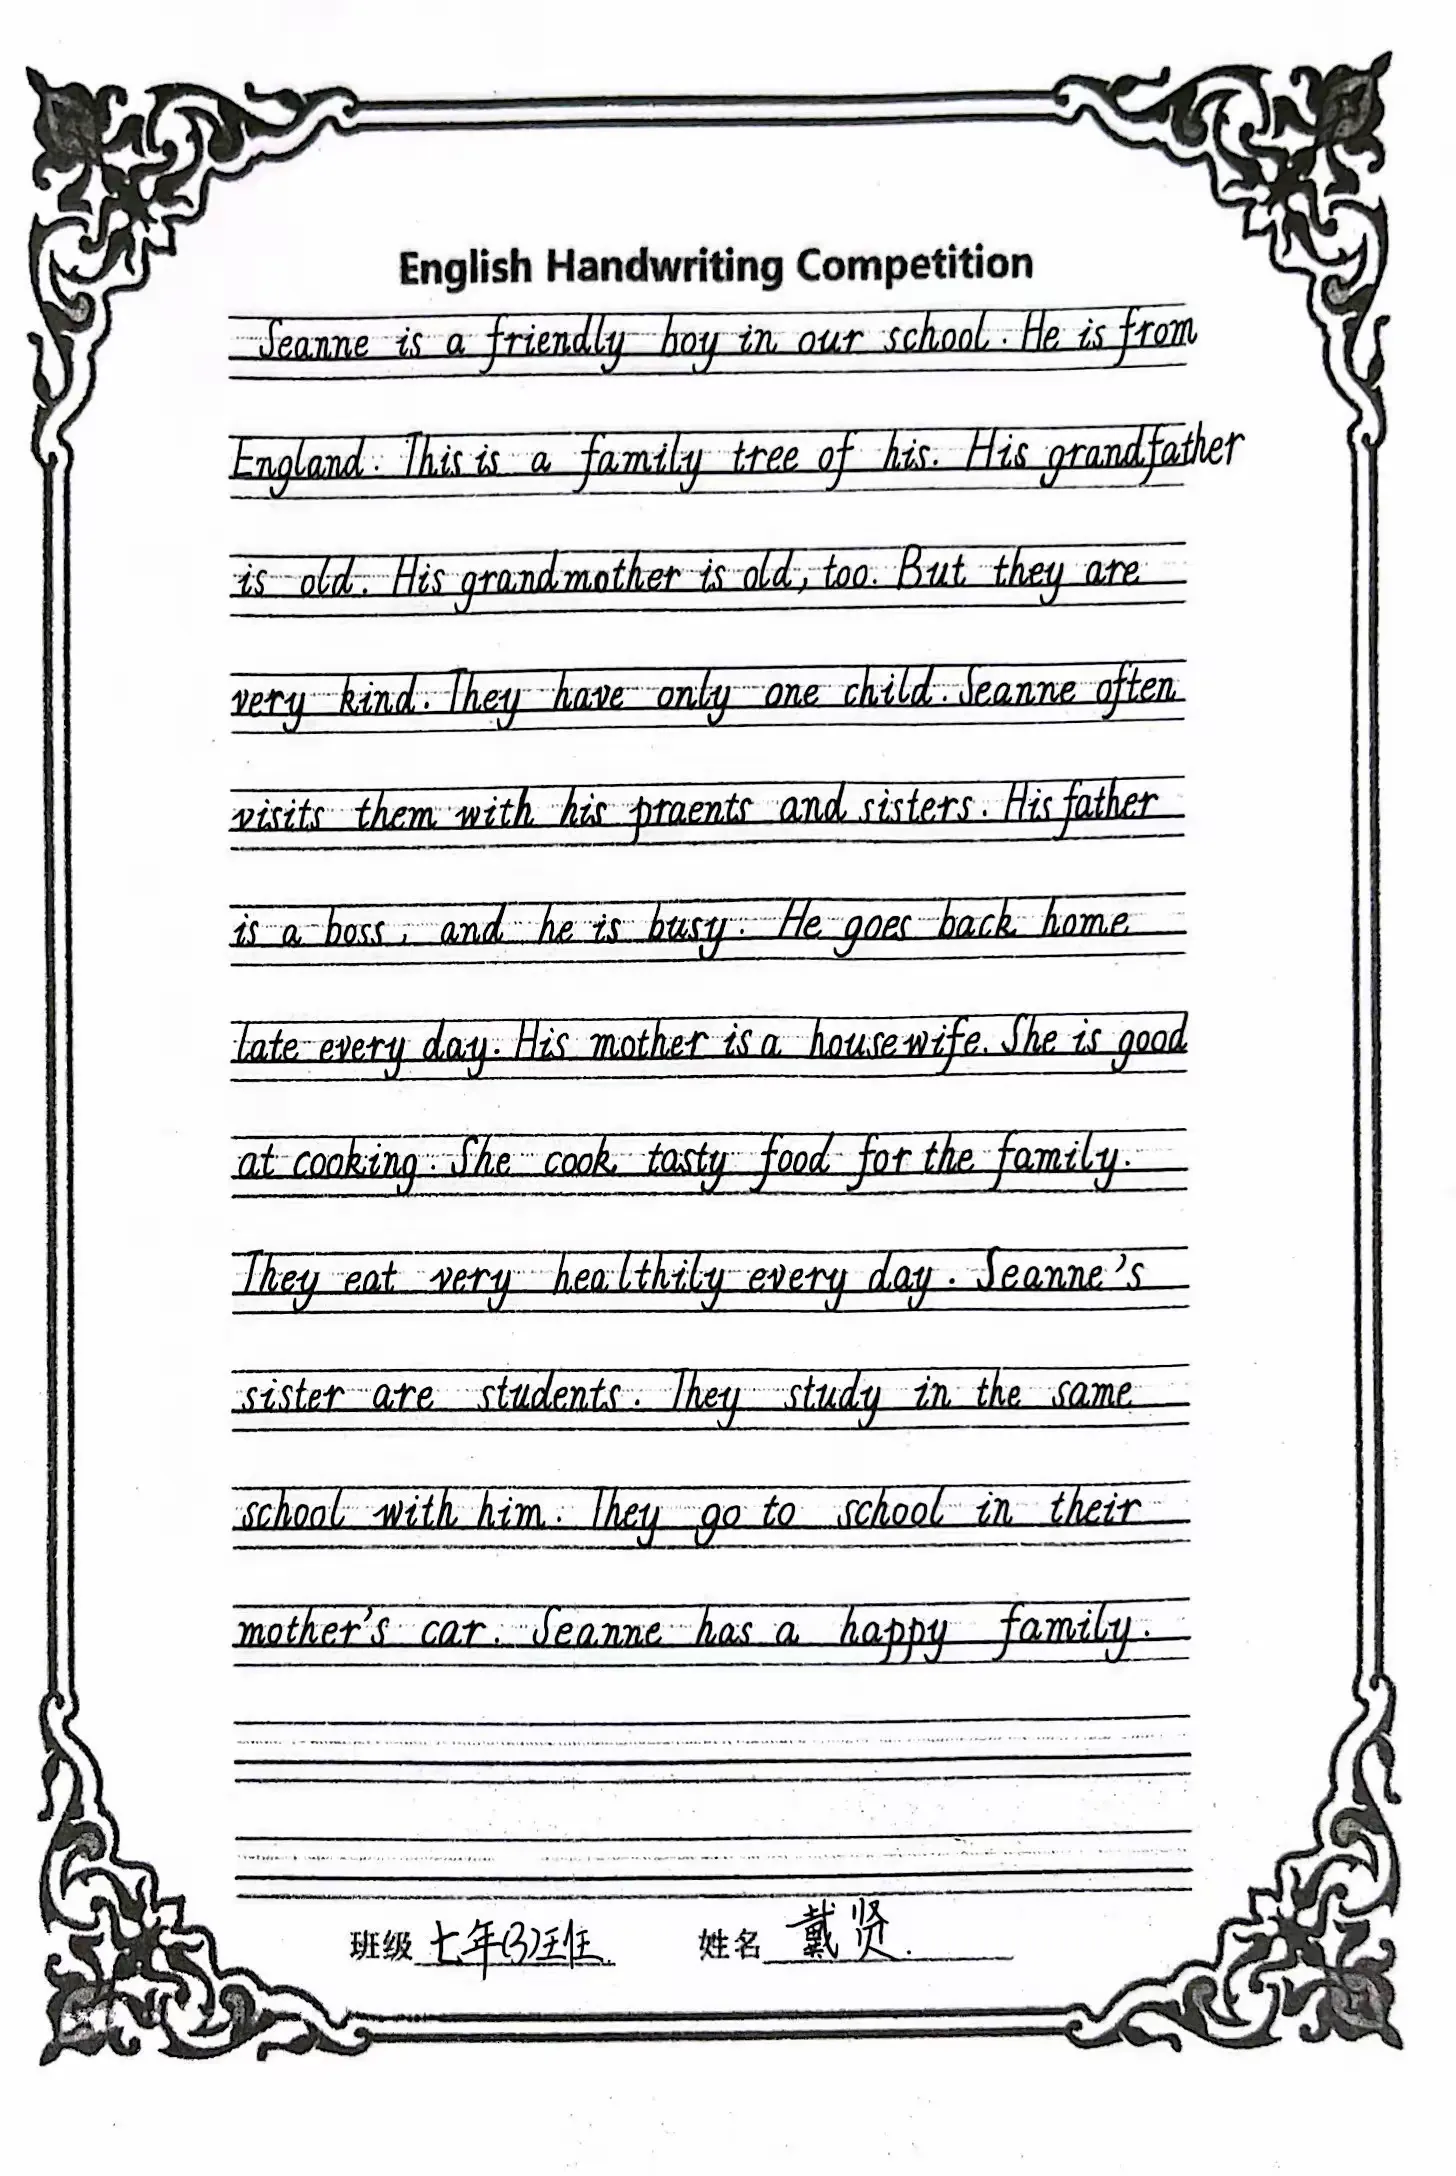 English Handwriting Competition
Seanne is a friendly boy in our school. He is from
England. This is a family tree of his. His grandfather
is old. His grandmother is old, too. But they are
very kind. They have only one child. Seanne often
visits them with his praents and sisters. His father
is a boss, and he is busy. He goes back home
late every day. His mother is a housewife. She is good
at cooking. She cook tasty food for the family.
They eat very healthily every day. Seanne's
sister are students. They study in the same
school with him. They go to school in their
mother's car. Seanne has a happy family.
班级 七年(3)班 姓名 戴贤.